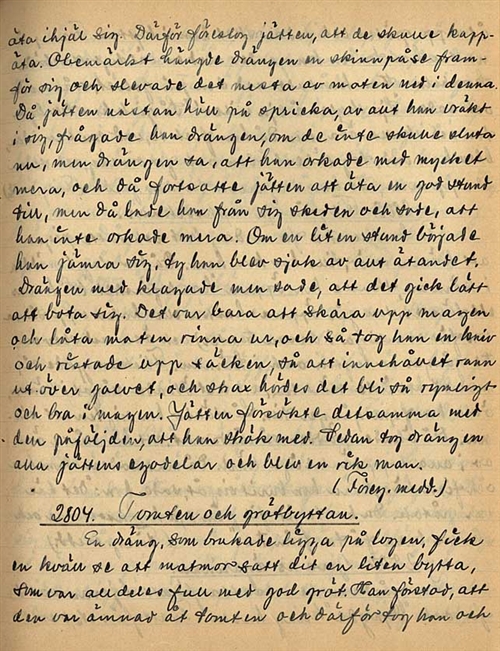 äta ihjäl sig. Därför föreslog jätten, att de skulle kapp-
äta. Obemärkt hängde drängen en skinnpåse fram-
för sig och slevade det mesta av maten ned i denna.
Då jätten nästan höll på spricka, av allt han vräkt
i sig, frågade han drängen, om de inte skulle sluta
nu, men drängen sa, att han orkade med mycket
mera, och då fortsatte jätten att äta en god stund
till, men då lade han från sig skeden och sade, att
han inte orkade mera. Om en liten stund började
han jämra sig, ty han blev sjuk av allt ätandet.
Drängen med klagade men sade, att det gick lätt
att bota sig. Det var bara att skära upp magen
och låta maten rinna ur, och så tog han en kniv
och ristade upp säcken, så att innehållet rann
ut över golvet, och strax hördes det bli så rymligt
och bra i magen. Jätten försökte detsamma med
den påföljden, att han strök med. Sedan tog drängen
alla jättens egodelar och blev en rik man.
(Föreg. medd.)
2804. Tomten och grötbyttan.
En dräng, som brukade ligga på logen, fick
en kväll se att matmor satt dit en liten bytta,
som var alldeles full med god gröt. Han förstod, att
den var ämnad åt tomten och därför tog han och